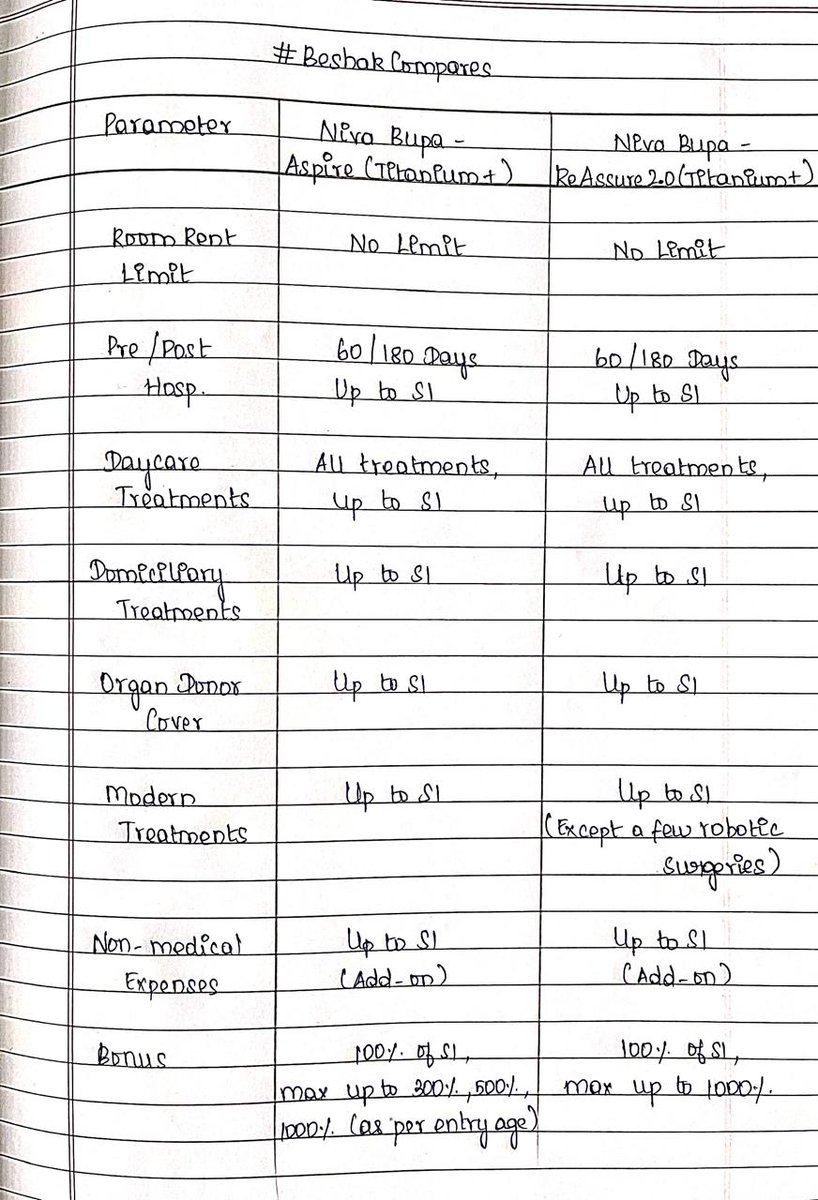 #BeshakCompares
Parameter
Niva Bupa -
Aspire (Titanium+)
Niva Bupa -
ReAssure 2.0 (Titanium+)
Room Rent
Limit
No Limit
No Limit
Pre/Post
Hosp.
60/180 Days
Up to SI
60/180 Days
Up to SI
Daycare
Treatments
All treatments,
Up to SI
All treatments,
Up to SI
Domiciliary
Treatments
Up to SI
Up to SI
Organ Donor
Cover
Up to SI
Up to SI
Modern
Treatments
Up to SI
Up to SI
(Except a few robotic
surgeries)
Non-medical
Expenses
Up to SI
(Add-on)
Up to SI
(Add-on)
Bonus
100% of SI,
max up to 300%, 500%,
1000% (as per entry age)
100% of SI,
max up to 1000%.